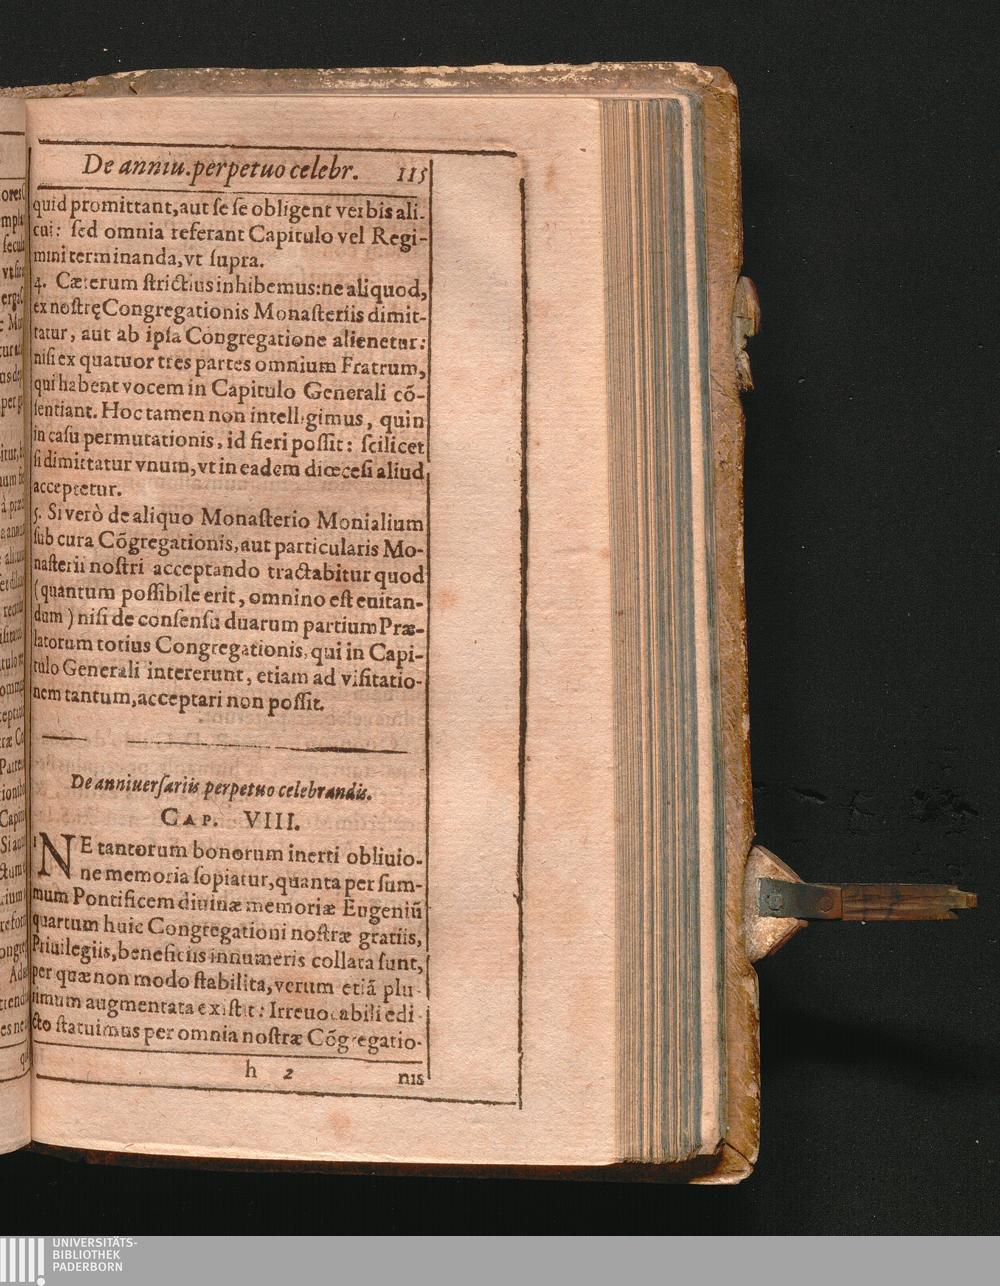 De anniu. perpetuo celebr. 115
quid promittant, aut se se obligent verbis ali-
cui: sed omnia referant Capitulo vel Regi-
mini terminanda, vt supra.
4. Cæterum strictius inhibemus: ne aliquod,
ex nostrę Congregationis Monasteriis dimit-
tatur, aut ab ipsa Congregatione alienetur:
nisi ex quatuor tres partes omnium Fratrum,
qui habent vocem in Capitulo Generali cõ-
sentiant. Hoc tamen non intelligimus, quin
in casu permutationis, id fieri possit: scilicet
si dimittatur vnum, vt in eadem diœcesi aliud
acceptetur.
5. Si verò de aliquo Monasterio Monialium
sub cura Cõgregationis, aut particularis Mo-
nasterii nostri acceptando tractabitur quod
(quantum possibile erit, omnino est euitan-
dum) nisi de consensu duarum partium Præ-
latorum totius Congregationis, qui in Capi-
tulo Generali intererunt, etiam ad visitatio-
nem tantum, acceptari non possit.
De anniuersariis perpetuo celebrandis.
CAP. VIII.
1 NE tantorum bonorum inerti obliuio-
ne memoria sopiatur, quanta per sum-
mum Pontificem diuinæ memoriæ Eugeniũ
quartum huic Congregationi nostræ gratiis,
Priuilegiis, beneficiis innumeris collata sunt,
per quæ non modo stabilita, verum etiã plu-
rimum augmentata existit: Irreuocabili edi-
cto statuimus per omnia nostræ Cõgregatio-
h 2 nis
UNIVERSITÄTS-
BIBLIOTHEK
PADERBORN